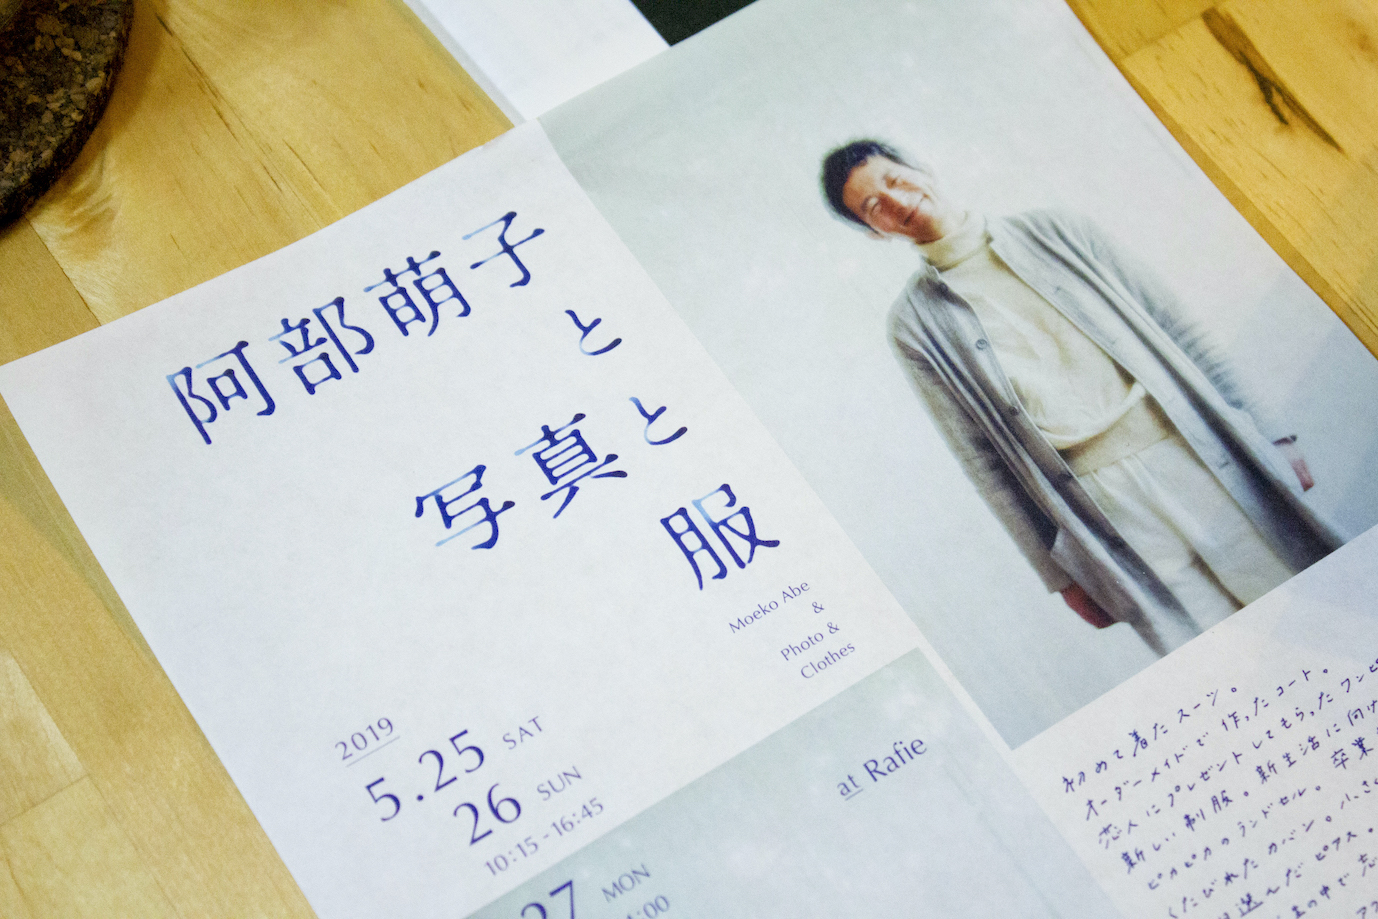 阿部萌子
と
写真と
服
Moeko Abe
&
Photo &
Clothes
2019
5.25 SAT
26 SUN
10:15-16:45
27 MON
:00
at Rafie
初めて着たスーツ。
オーダーメイドで作ったコート。
恋人にプレゼントしてもらったワンピ
新しい制服。新生活に向け
ピカピカのランドセル。卒業
くたびれたカバン。小さ
選んだピアス。
の中で